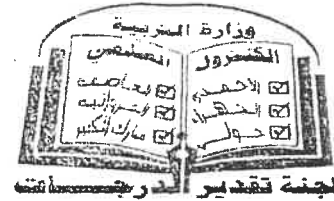 وزارة التربية
الكنترول
العلمى
الأحمدى
الجهراء
حولى
العاصمة
الفروانية
مبارك الكبير
لجنة تقدير الدرجات